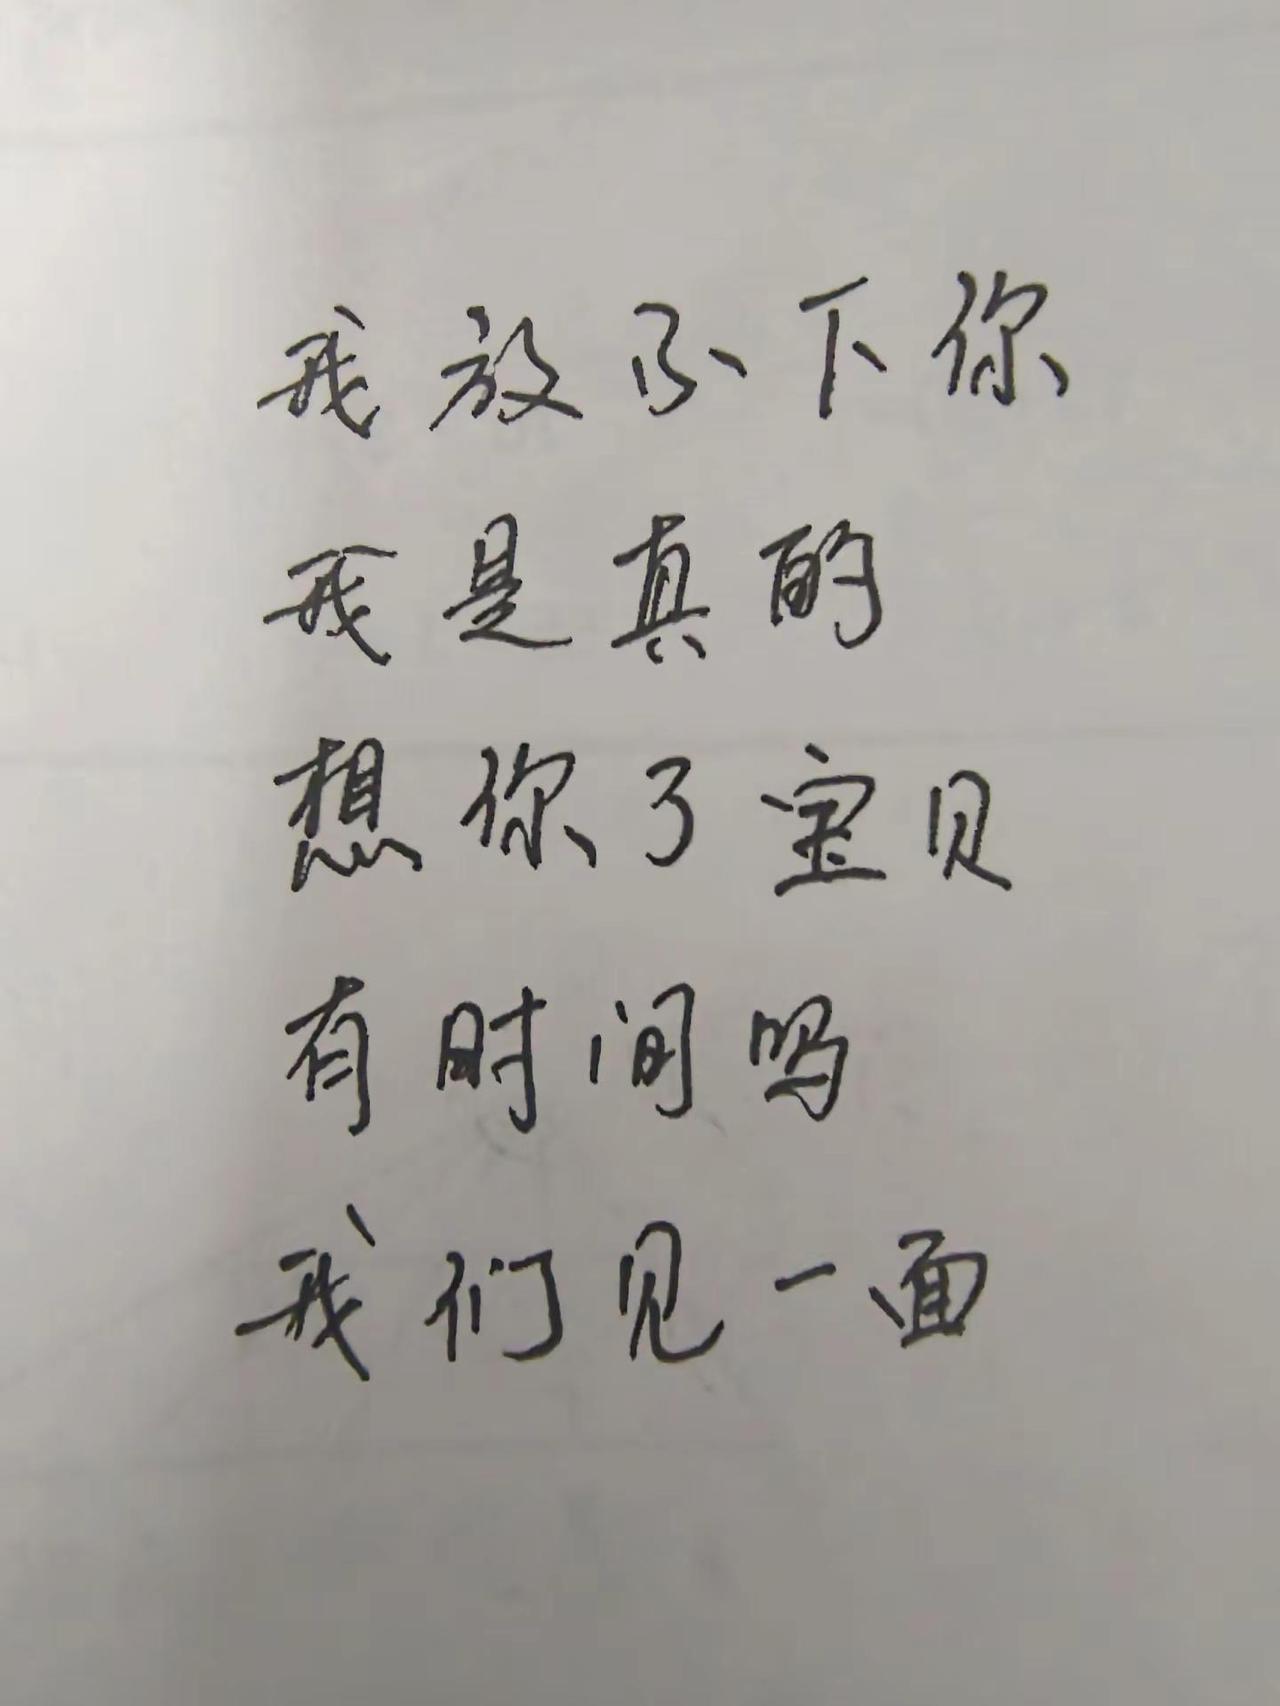 我放不下你
我是真的
想你了宝贝
有时间吗
我们见一面